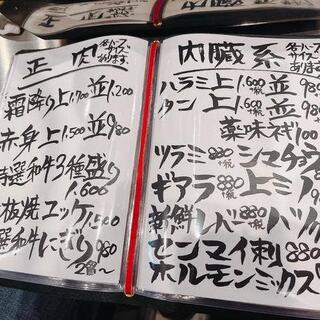 正肉 各ハーフサイズあります。
霜降り上1,700 並1,200
赤身上1,500 並980
特選和牛3種盛り
1,600
板焼ユッケ1,500
選和牛にぎり980
2貫〜
内臓系 各ハーフサイズあります。
ハラミ上1,600 並980
タン上1,600 並980
薬味ネギ100
ツラミ880 シマチョウ
ギアラ880 上ミノ
新鮮レバー880 ハツ
センマイ刺880
ホルモンミックス